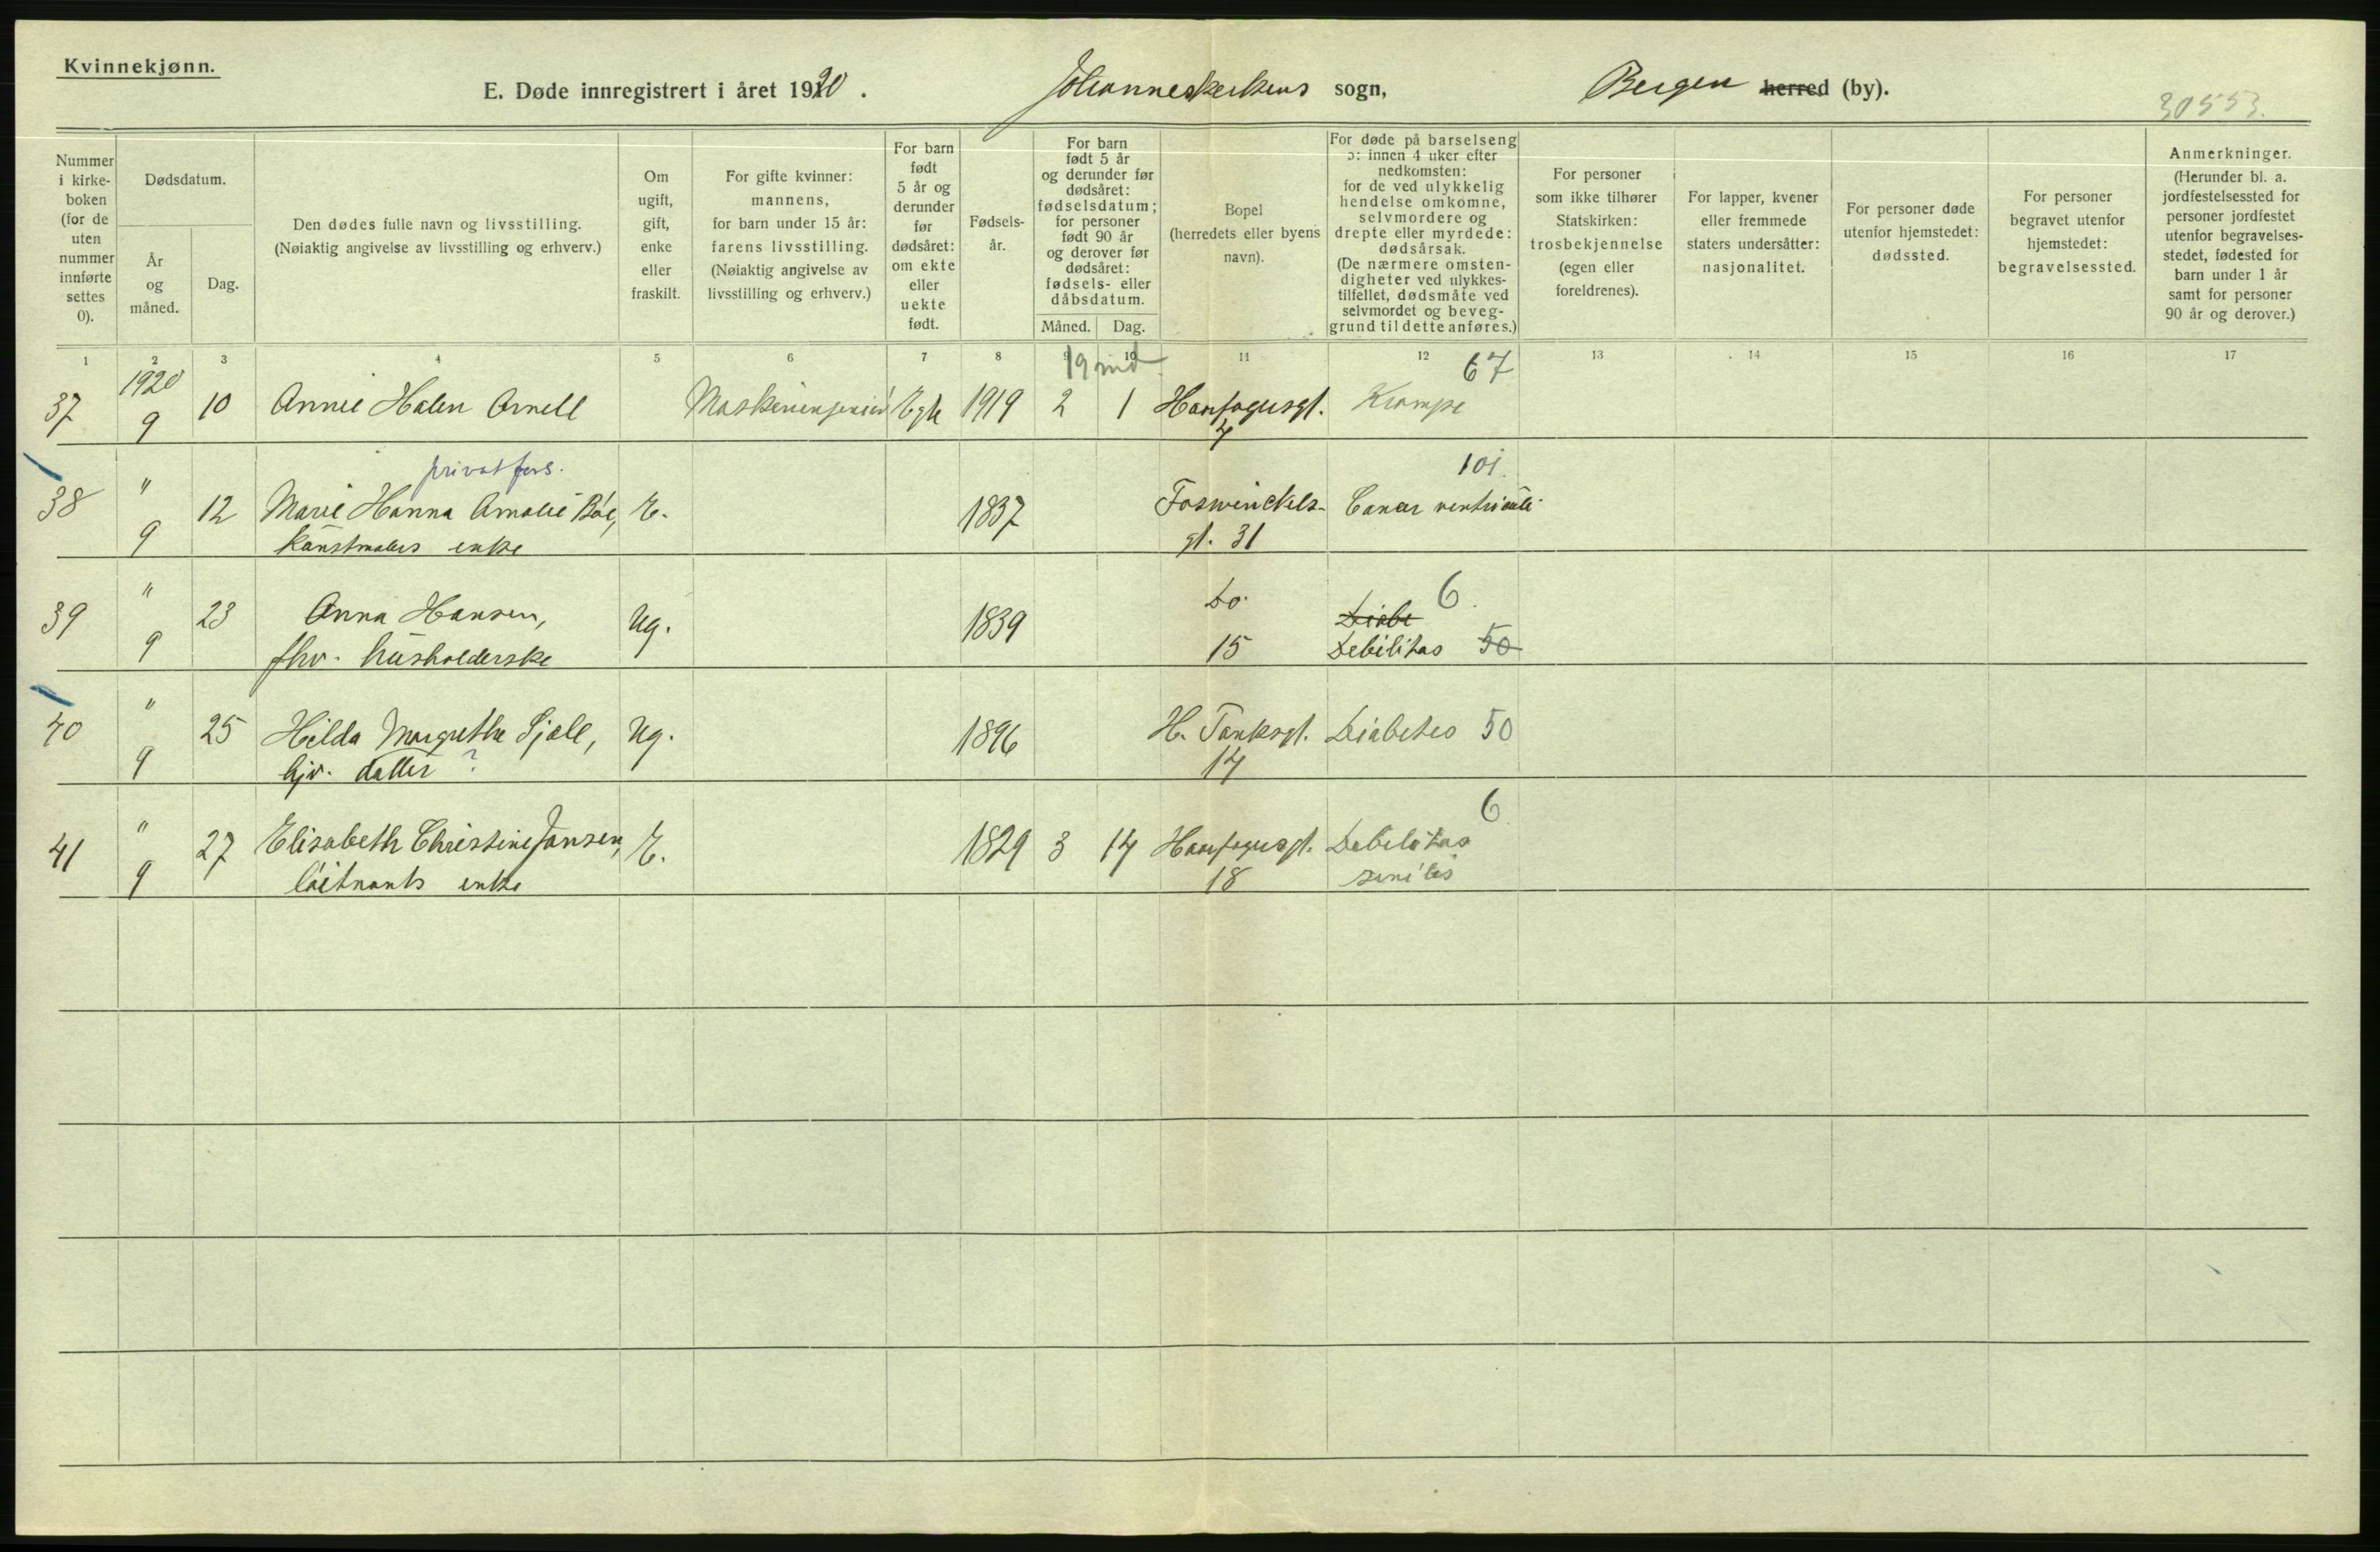 Kvinnekjønn.
E. Døde innregistrert i året 1920. Johanneskirkens sogn, Bergen herred (by).
30553.
Nummer i kirke- boken (for de uten nummer innførte settes 0).
Dødsdatum.
År og måned.
Dag.
Den dødes fulle navn og livsstilling.
(Nøiaktig angivelse av livsstilling og erhverv.)
Om ugift, gift, enke eller fraskilt.
For gifte kvinner: mannens, for barn under 15 år: farens livsstilling. (Nøiaktig angivelse av livsstilling og erhverv.)
For barn født 5 år og derunder før dødsåret: om ekte eller uekte født.
Fødsels- år.
For barn født 5 år og derunder før dødsåret: fødselsdatum; for personer født 90 år og derover før dødsåret: fødsels- eller dåbsdatum.
Måned. Dag.
Bopel (herredets eller byens navn).
For døde på barselseng ɔ: innen 4 uker efter nedkomsten: for de ved ulykkelig hendelse omkomne, selvmordere og drepte eller myrdede: dødsårsak. (De nærmere omsten- digheter ved ulykkes- tilfellet, dødsmåte ved selvmordet og beveg- grund til dette anføres.)
For personer som ikke tilhører Statskirken: trosbekjennelse (egen eller foreldrenes).
For lapper, kvener eller fremmede staters undersåtter: nasjonalitet.
For personer døde utenfor hjemstedet: dødssted.
For personer begravet utenfor hjemstedet: begravelsessted.
Anmerkninger. (Herunder bl. a. jordfestelsessted for personer jordfestet utenfor begravelses- stedet, fødested for barn under 1 år samt for personer 90 år og derover.)
1 2 3 4 5 6 7 8 9 10 11 12 13 14 15 16 17
1920 19 md. 67
37 9 10 Annie Halen Arnell Maskiningeniør Egte 1919 2 1 Krampe
4
privat fors. 101.
38 " 9 12 Marie Hanna Amalie Bøe, E. 1837 Foswinckels- Cancer ventriculi
kunstmalers enke gt. 31
39 " 9 23 Anna Hansen, Ug. 1839 Do. Diabe 6.
fhv. husholderske 15 Debilitas 50
40 " 9 25 Hilda Margrethe Ug. 1896 H. Tanksgt. Diabetes 50
hjv. datter ? 14
6.
41 " 9 27 Elisabeth Christine Jansen, E. 1829 3 14 Debilitas
løitnants enke 18 senilis